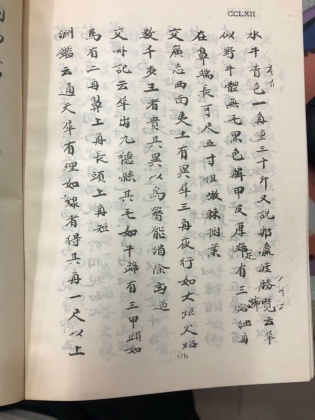 CCLXII
水牛青色一角重三十斤又說邪瀛涯勝覽云犀
似野牛體無毛黑色鱗甲皮厚蹄有三
在鼻端長可尺五寸啖棘樹葉
交廣志西南夷土有異犀三角夜行如大炬火炤
數千步王者貴其異以為簪能消除凶逆
交州記云犀出九德縣其毛如牛蹄有三甲頭如
馬有二角鼻上角長頭上角短
淵鑑云通天犀有理如線者得其角一尺以上
37b